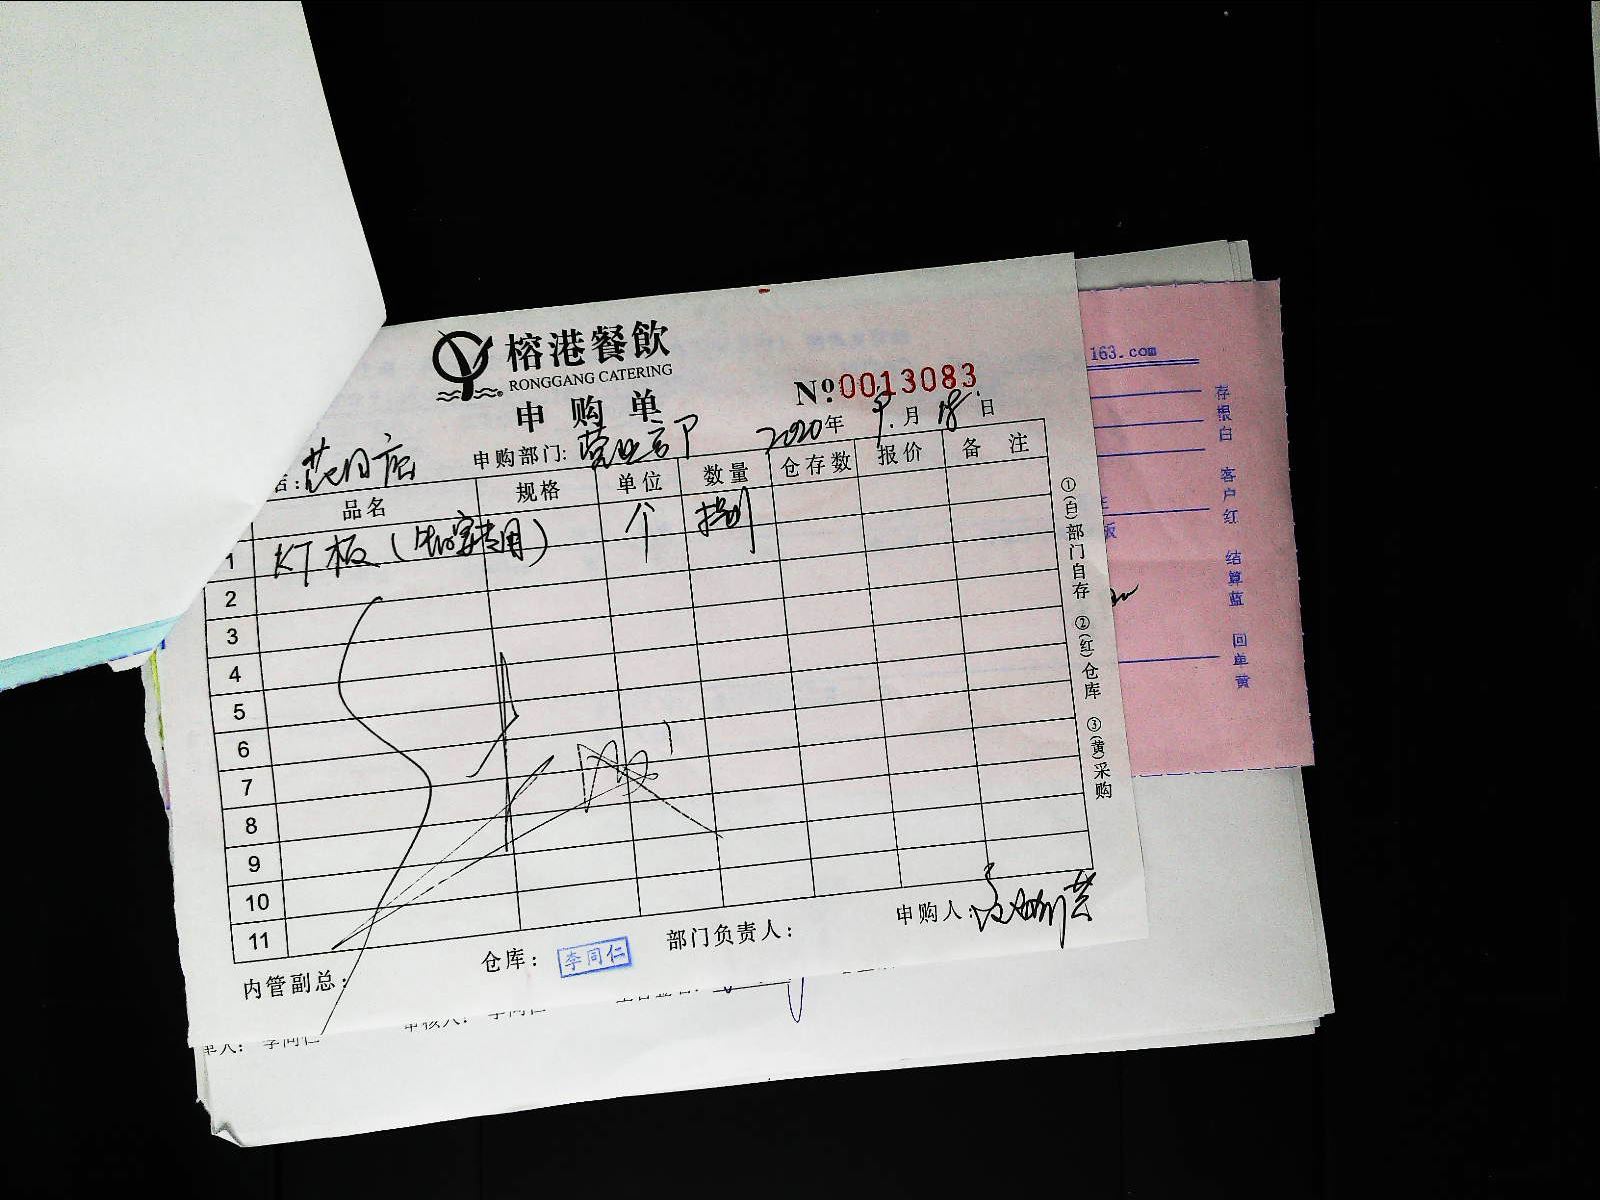 榕港餐飲
RONGGANG CATERING
申购单
№0013083
店:
申购部门: 营业部
2020年9月18日
品名 规格 单位 数量 仓存数 报价 备注
1 KT板 个
2
3
4
5
6
7
8
9
10
11
内管副总:
仓库: 李同仁
部门负责人:
申购人:
①(白)部门自存 ②(红)仓库 ③(黄)采购
163.com
存根白 客户红 结算蓝 回单黄
板
单人: 李同仁
审核人: 李同仁